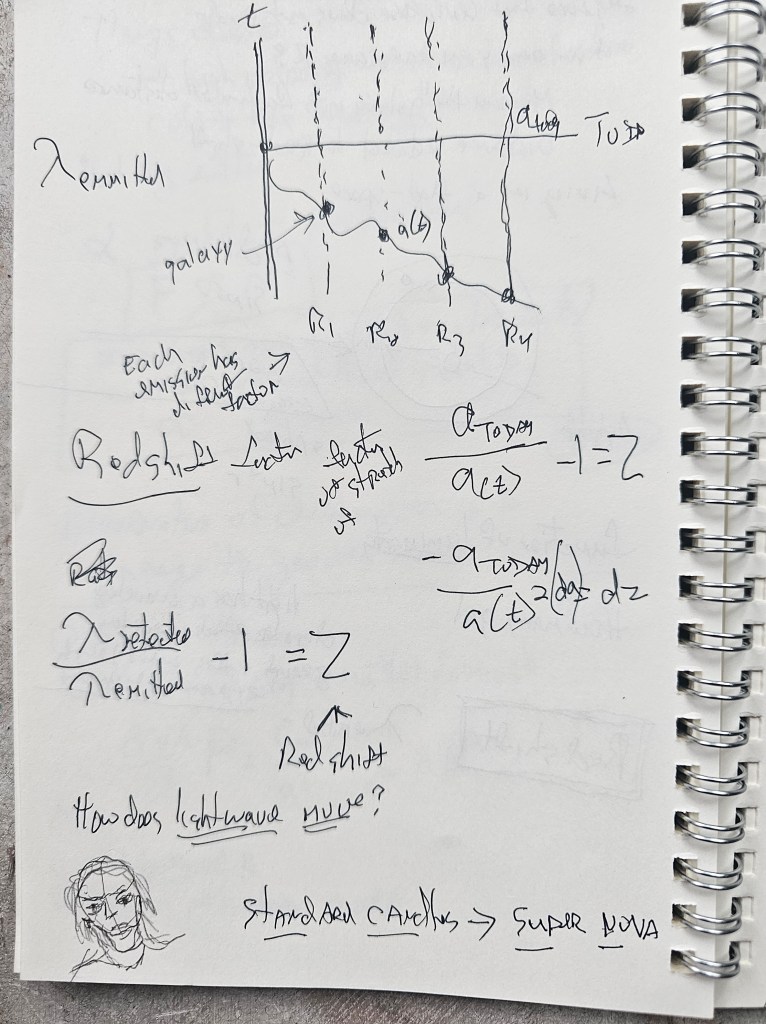 t
a today
TODAY
λ emmitted
galaxy
a(t)
R1 R2 R3 R4
Each
emission has
different
factor
Redshift factor
factor
of stretch
of
a TODAY / a(t) - 1 = Z
- a TODAY / a(t)^2 (da) = dz
λ detected / λ emitted - 1 = Z
Redshift
How does lightwave move?
STANDARD CANDles → SUPER NOVA